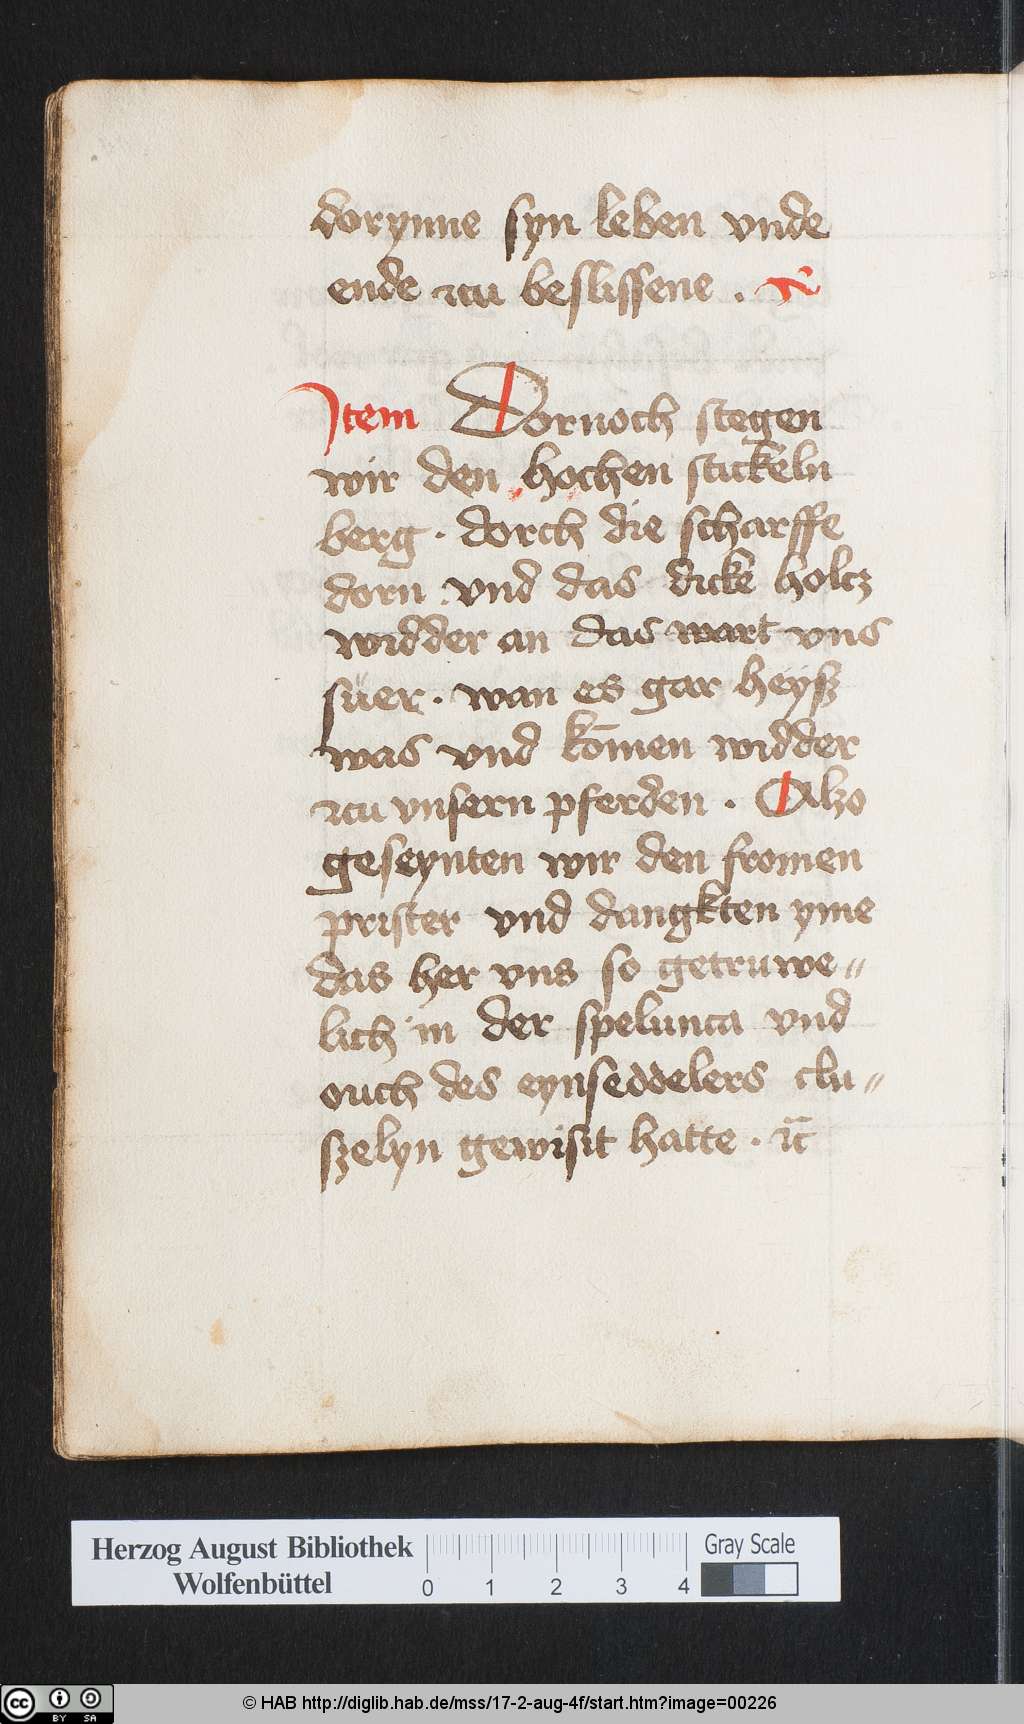 dorynne syn leben vnde
ende zcu beslissene .
Item Dornoch stegen
wir den hochen stickeln
berg · dorch die scharffe
dorn . vnd das dicke holcz
widder an das wart vns
süer · wan es gar heyß
was vnd kōmen widder
zcu vnsern pferden . Alzo
geseynten wir den fromen
prister vnd dangkten yme
das her vns so getruwe„
lich in der spelunca vnd
ouch des eynseddelers clu„
szelyn gewisit hatte . zc̄
Herzog August Bibliothek
Wolfenbüttel
0 1 2 3 4
Gray Scale
cc BY SA
© HAB http://diglib.hab.de/mss/17-2-aug-4f/start.htm?image=00226